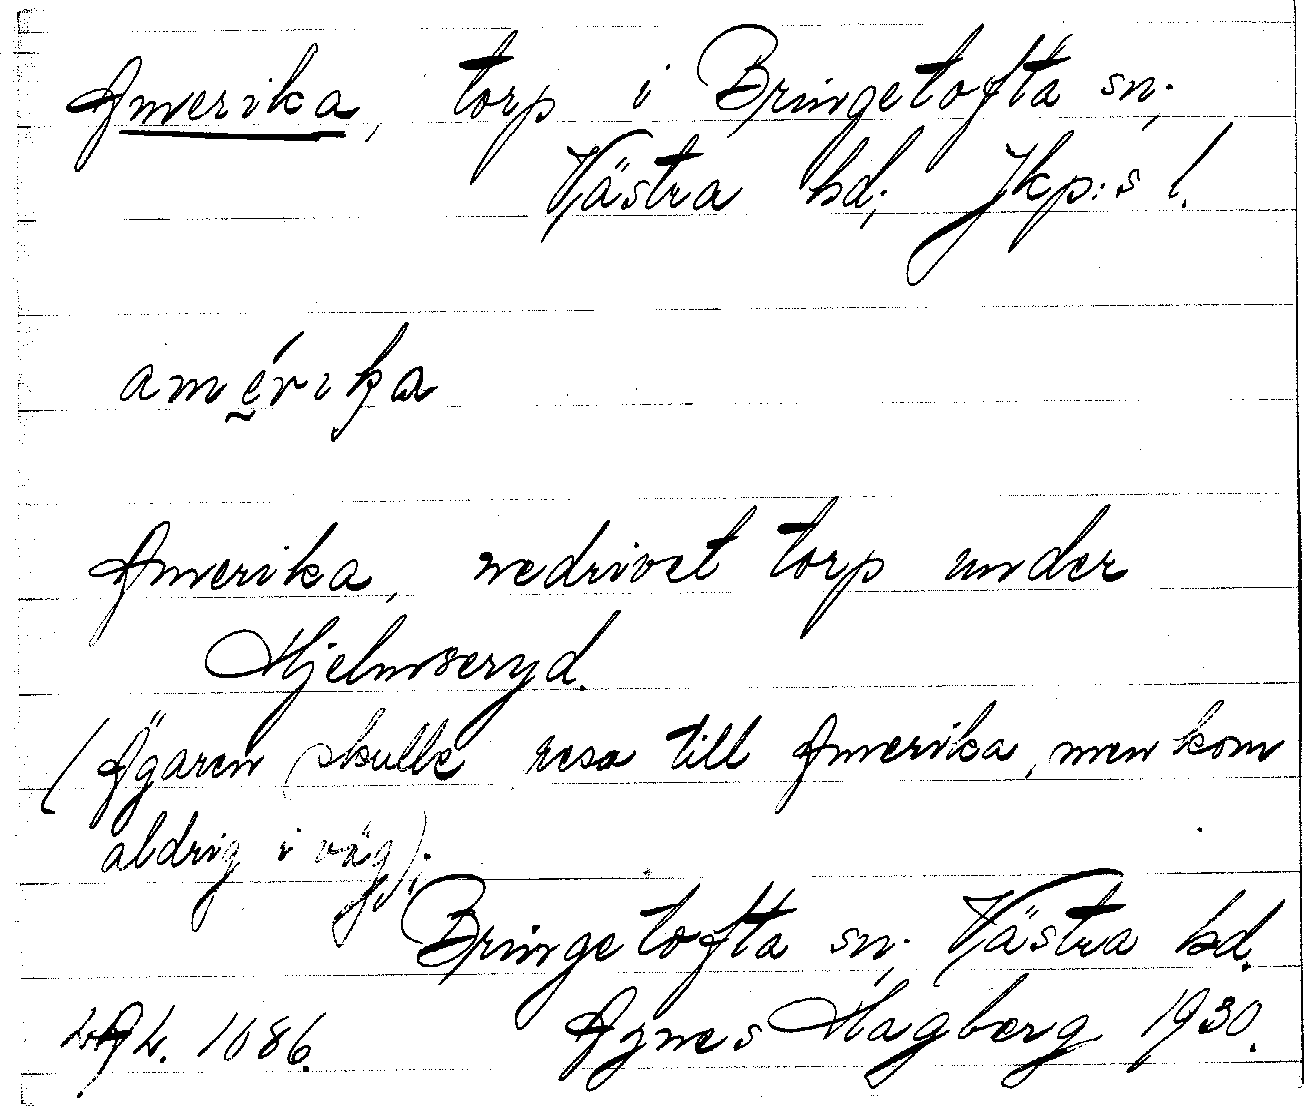 Amerika, torp i Bringetofta sn;
Västra hd; Jkp:s l.
amérika
Amerika, nedrivet torp under
Hjelmseryd.
(Ägaren skulle resa till Amerika, men kom
aldrig i väg);
Bringetofta sn; Västra hd.
1086. Agnes Hagberg 1930.